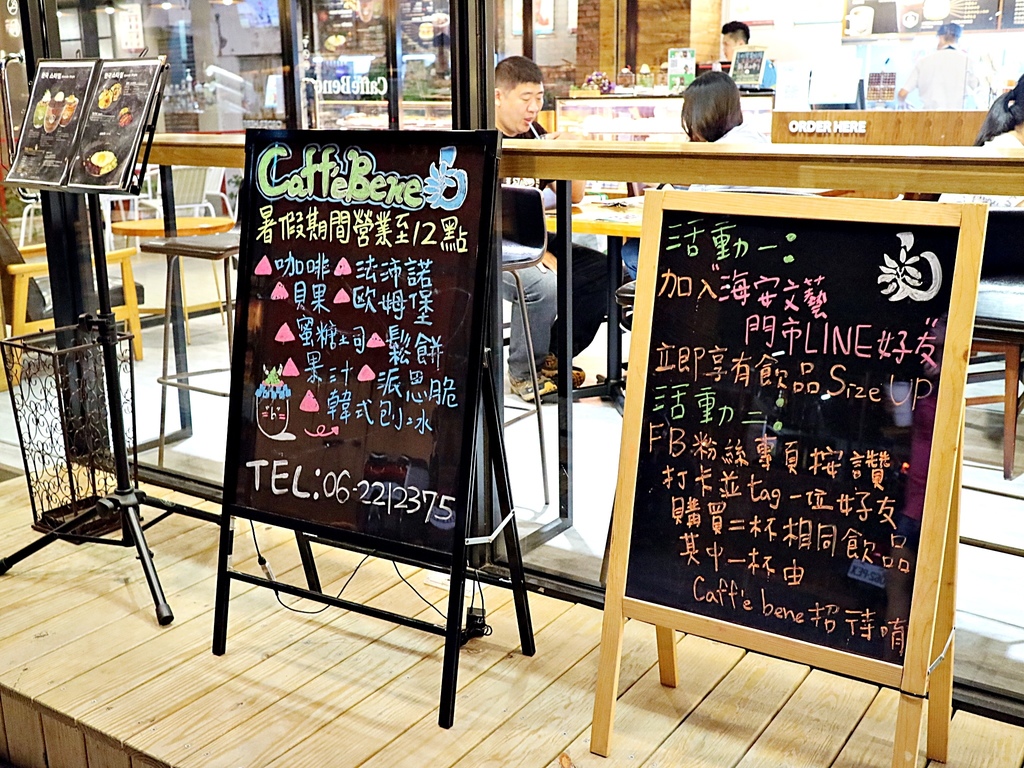 Caffe Bene
ORDER HERE
Caffe Bene
暑假期間營業至12點
咖啡 法沛諾
貝果 歐姆堡
蜜糖土司 鬆餅
果汁 派思脆
韓式包冰
TEL:06-2212375
活動一:
加入"海安文藝
門市LINE好友"
立即享有飲品Size UP
活動二:
FB粉絲專頁按讚
打卡並tag一位好友
購買二杯相同飲品
其中一杯由
Caffe bene招待唷